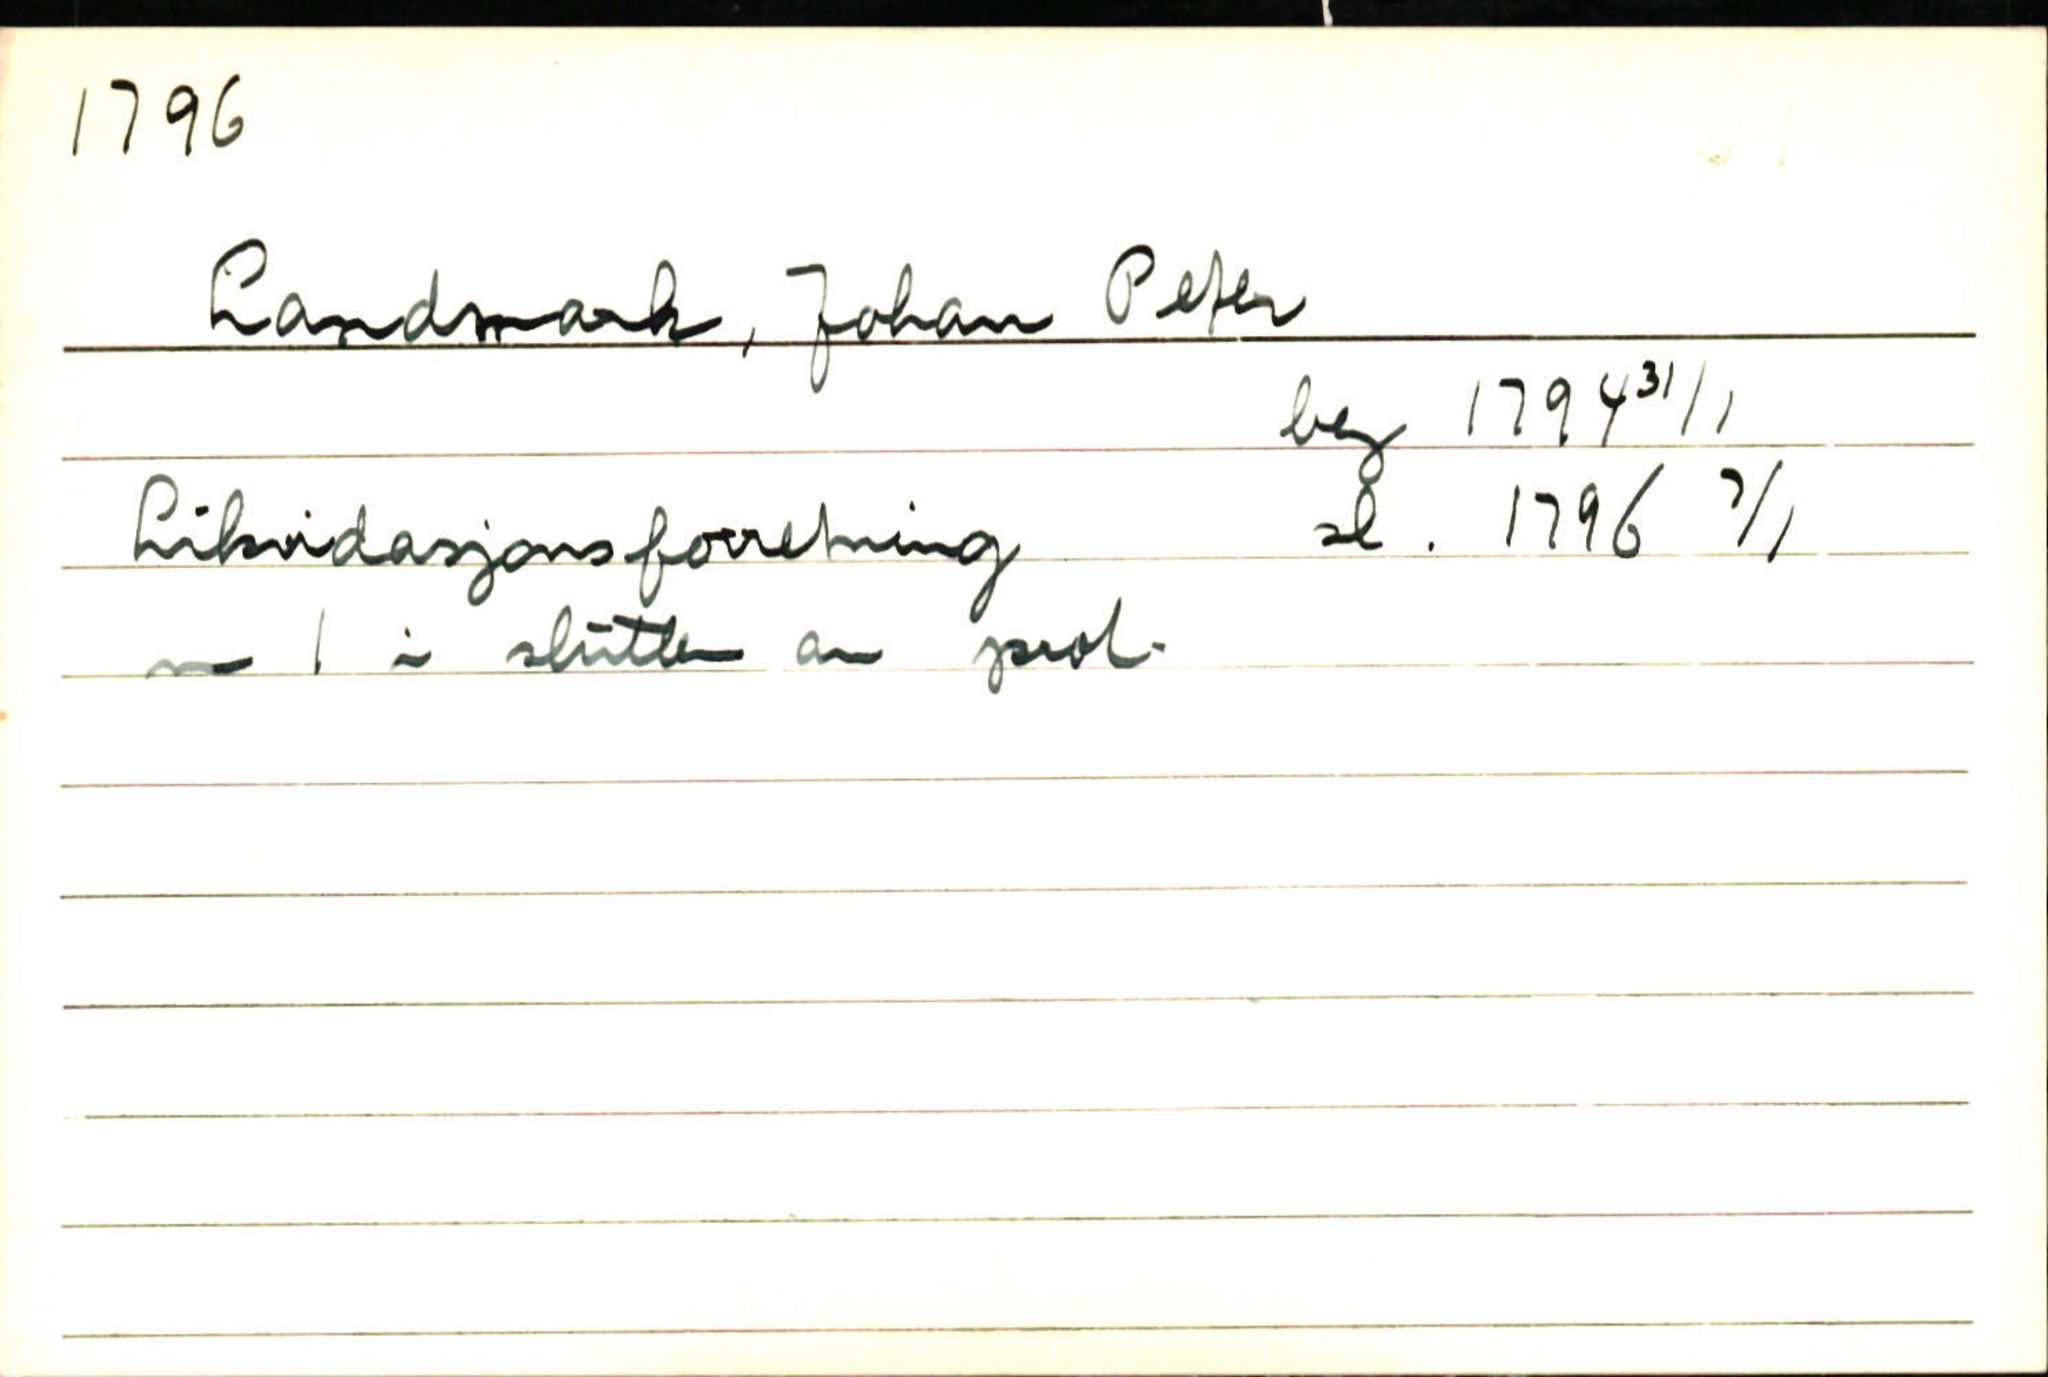 1796
Landmark, Johan Peter
beg 1794 31/1
Likvidasjonsforretning sl. 1796 7/1
nr 1 i slutten av prot.